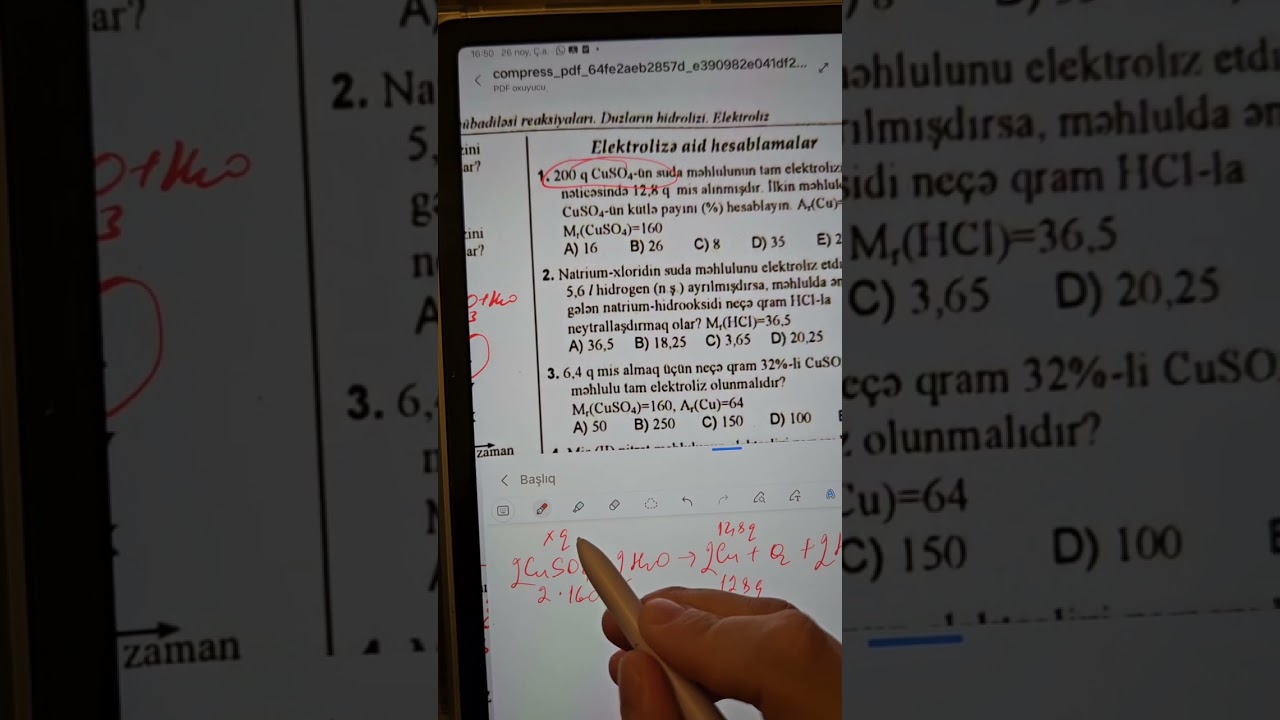 16:50 26 noy, Ç.a.
compress_pdf_64fe2aeb2857d_e390982e041df2...
PDF oxuyucu
übadiləsi reaksiyaları. Duzların hidrolizi. Elektroliz
zini
ar?
ini
ar?
zaman
Elektrolizə aid hesablamalar
1. 200 q CuSO₄-ün suda məhlulunun tam elektrolizi
nəticəsində 12,8 q mis alınmışdır. İlkin məhlul
CuSO₄-ün kütlə payını (%) hesablayın. Aᵣ(Cu)=
Mᵣ(CuSO₄)=160
A) 16 B) 26 C) 8 D) 35 E) 2
2. Natrium-xloridin suda məhlulunu elektroliz etd
5,6 l hidrogen (n ş.) ayrılmışdırsa, məhlulda ən
gələn natrium-hidrooksidi neçə qram HCl-la
neytrallaşdırmaq olar? Mᵣ(HCl)=36,5
A) 36,5 B) 18,25 C) 3,65 D) 20,25
3. 6,4 q mis almaq üçün neçə qram 32%-li CuSO
məhlulu tam elektroliz olunmalıdır?
Mᵣ(CuSO₄)=160, Aᵣ(Cu)=64
A) 50 B) 250 C) 150 D) 100
Başlıq
x q 12,8q
2CuSO 2H₂O → 2Cu + O₂ + 2H
2·160 128q
ar?
2. Na
5,
3. 6,
zaman
əhlulunu elektroliz etdi
ılmışdırsa, məhlulda ən
sidi neçə qram HCl-la
Mᵣ(HCl)=36,5
C) 3,65 D) 20,25
eçə qram 32%-li CuSO
olunmalıdır?
Cu)=64
C) 150 D) 100